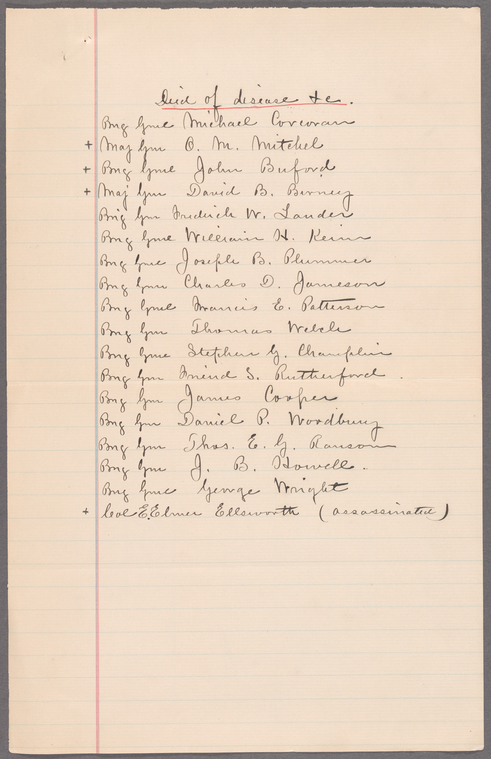 Died of disease &c.
Brig Genl Michael Corcoran
+ Maj Gen O. M. Mitchel
+ Brig Genl John Buford
+ Maj Gen David B. Birney
Brig Gen Fredrick W. Lander
Brig Genl William H. Keim
Brig Genl Joseph B. Plummer
Brig Gen Charles D. Jameson
Brig Genl Francis E. Patterson
Brig Gen Thomas Welsh
Brig Genl Stephen G. Champlin
Brig Gen Friend S. Rutherford.
Brig Gen James Cooper
Brig Gen Daniel P. Woodbury
Brig Gen Thos. E. G. Ransom
Brig Gen J. B. Howell.
Brig Genl George Wright
+ Col E. Elmer Ellsworth (assassinated)